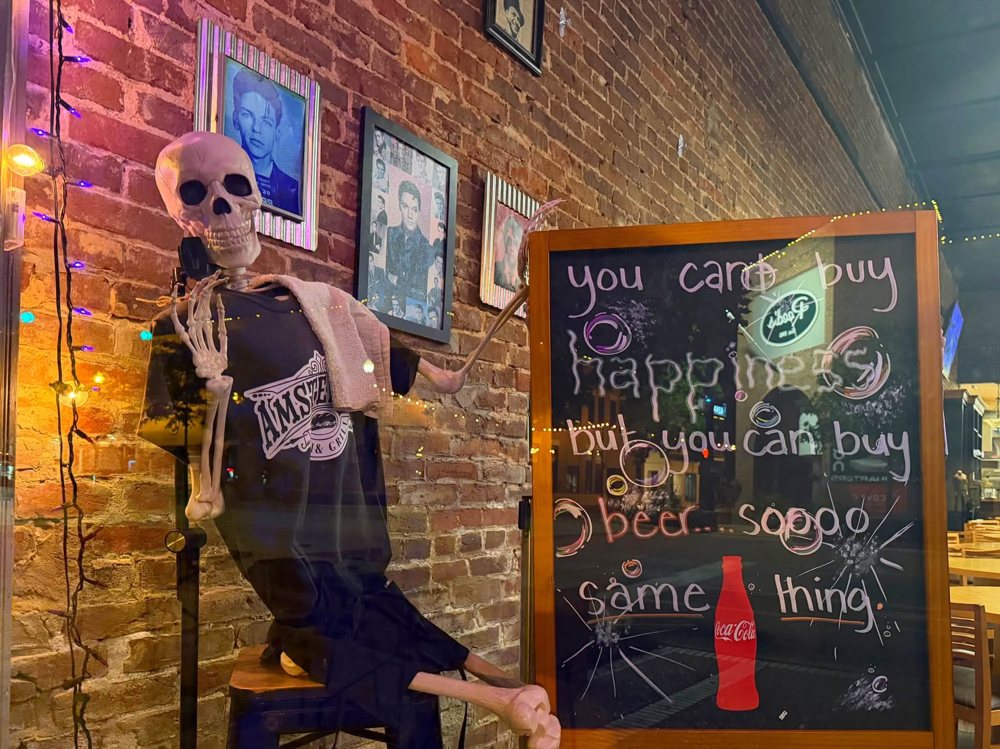 you can't buy
Reed's
happiness
but you can buy
beer.. sooooo
same thing.
Coca-Cola
AMSTE
& GRILL
QUARTERS